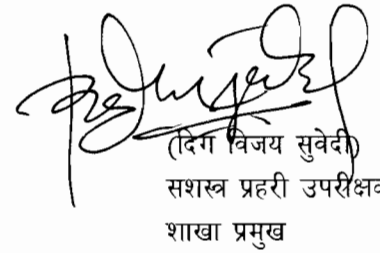 (दिग विजय सुवेदी)
सशस्त्र प्रहरी उपरीक्षक
शाखा प्रमुख